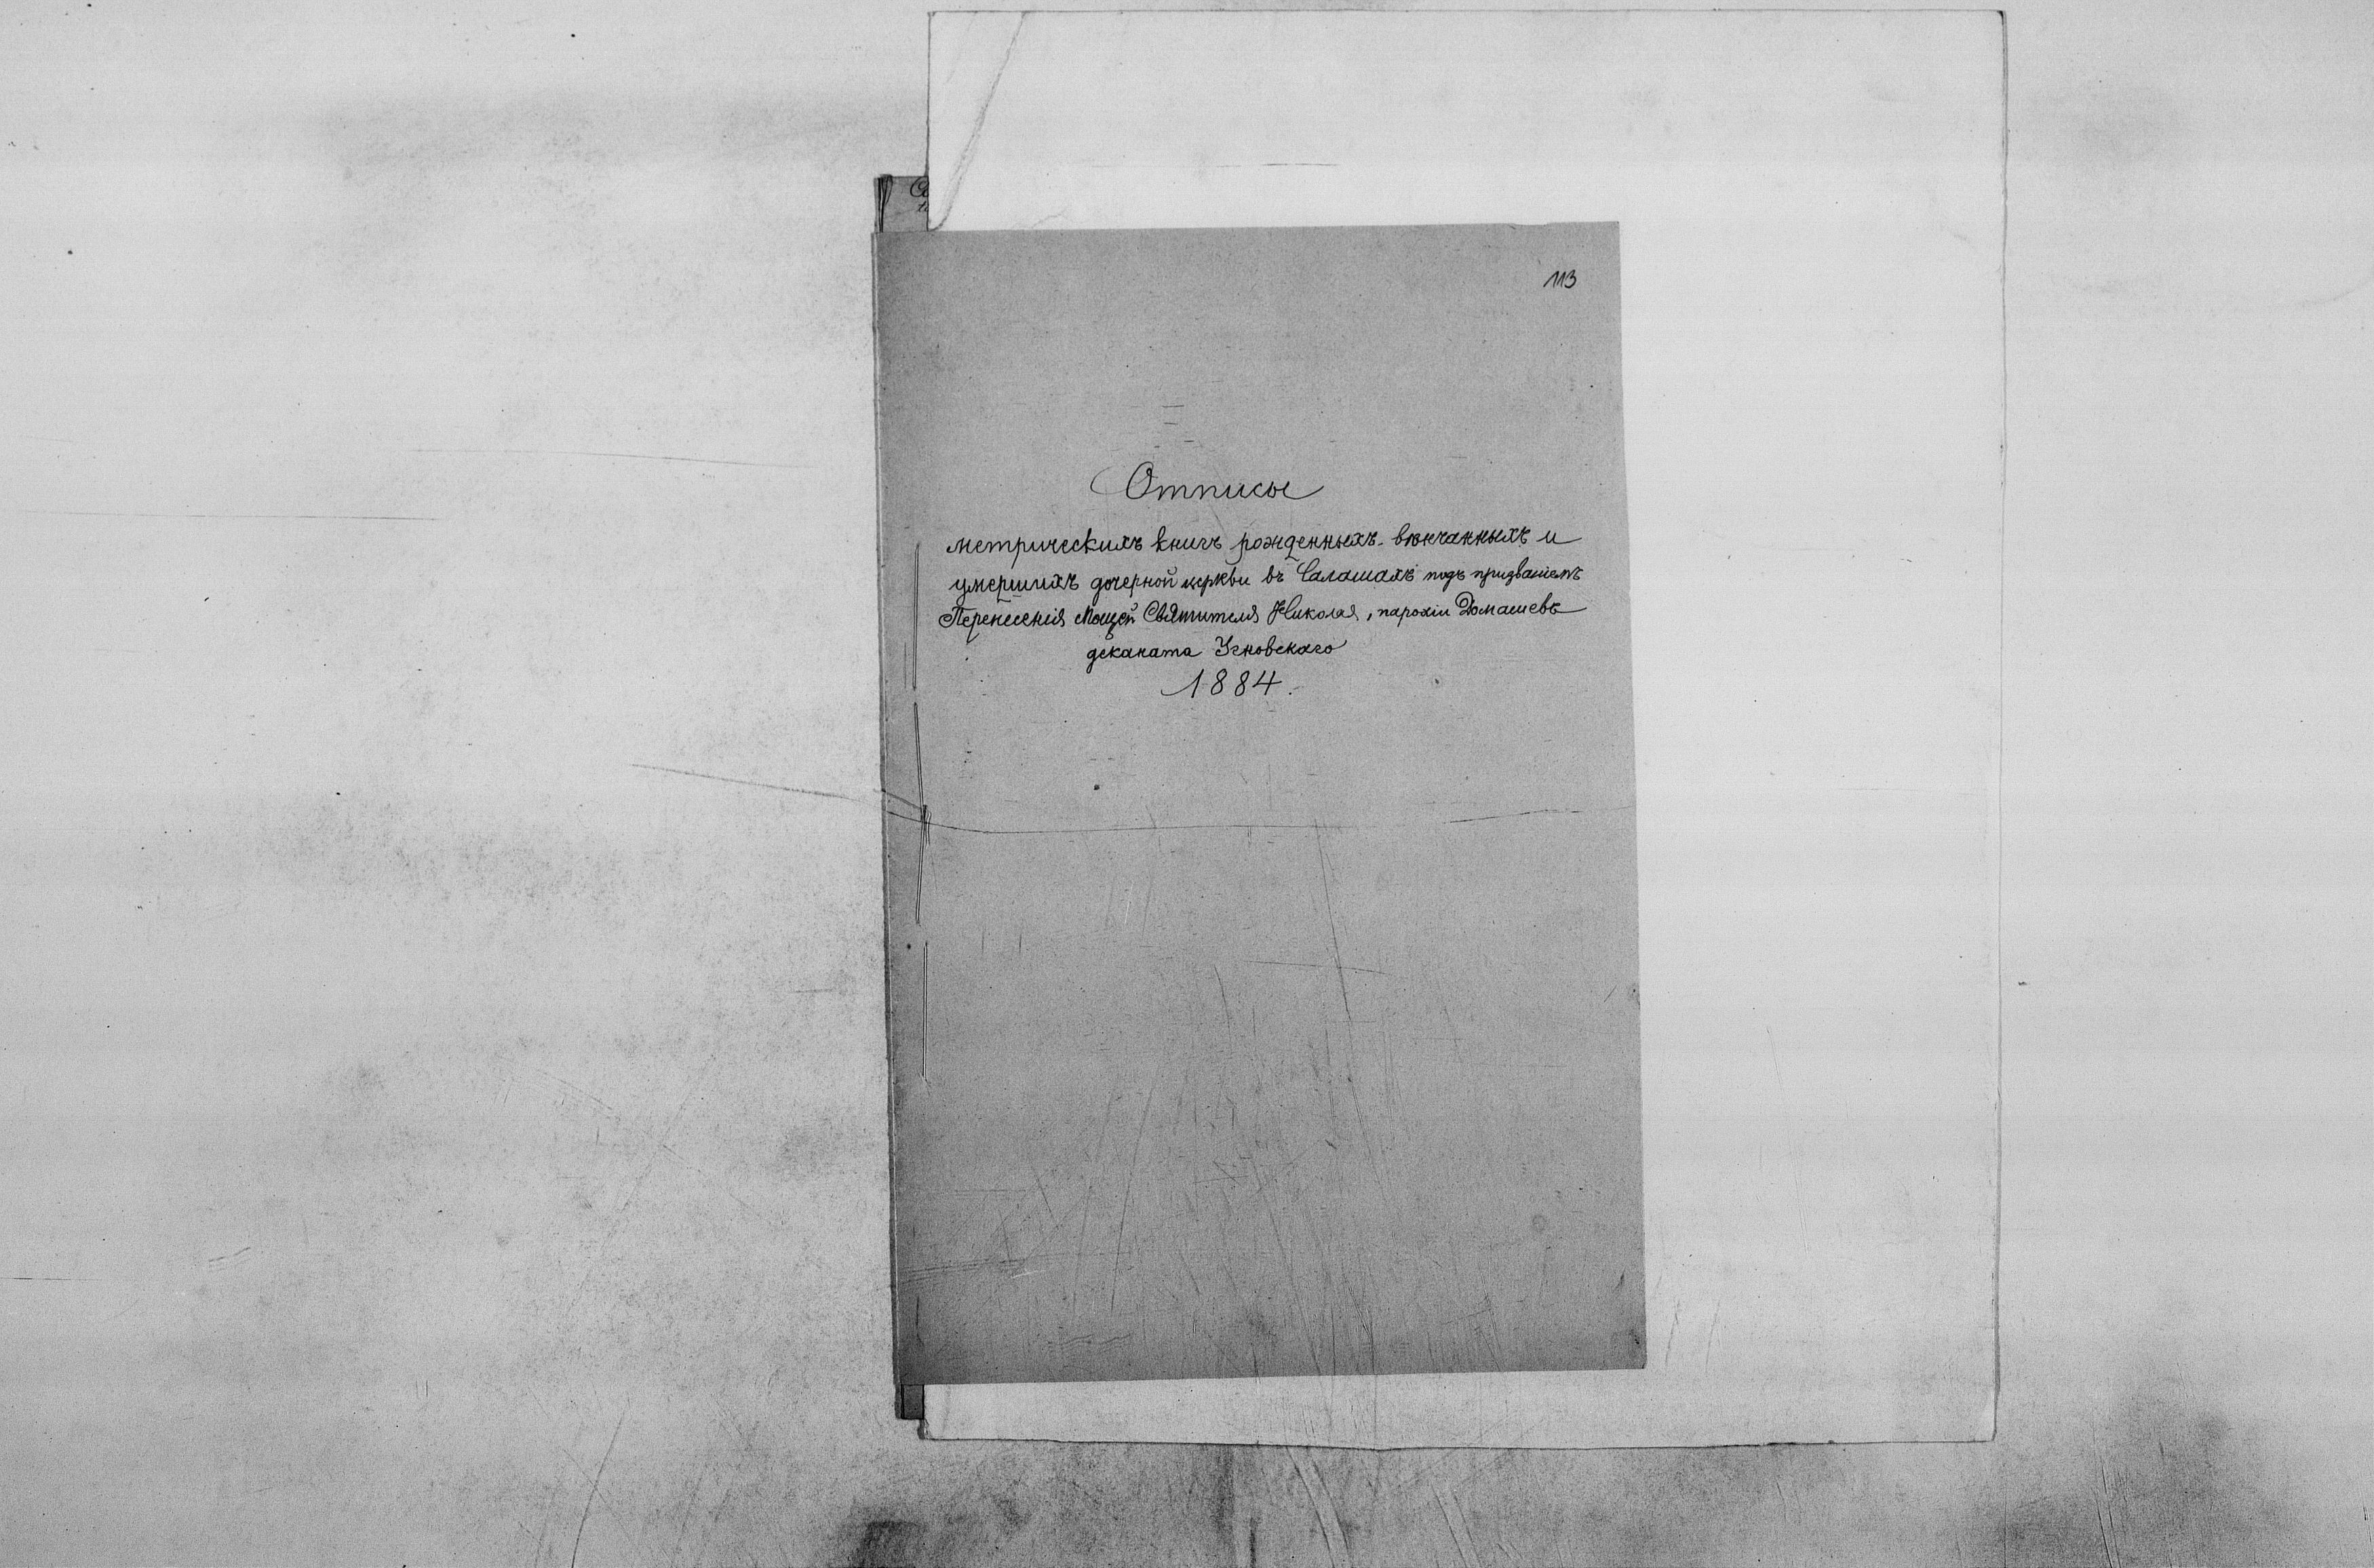 113
Отписы
метрическихъ книгъ рожденныхъ вѣнчанныхъ и
умершихъ дочерной церкви въ Салашахъ подъ призваніемъ
Перенесенія Мощей Святителя Николая, парохіи Домашевъ
деканата Угновскаго
1884.